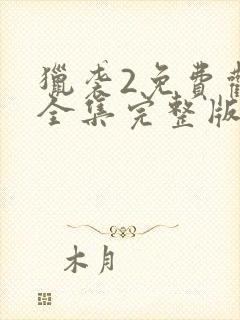 獵袭2免費
全集完整版
木月